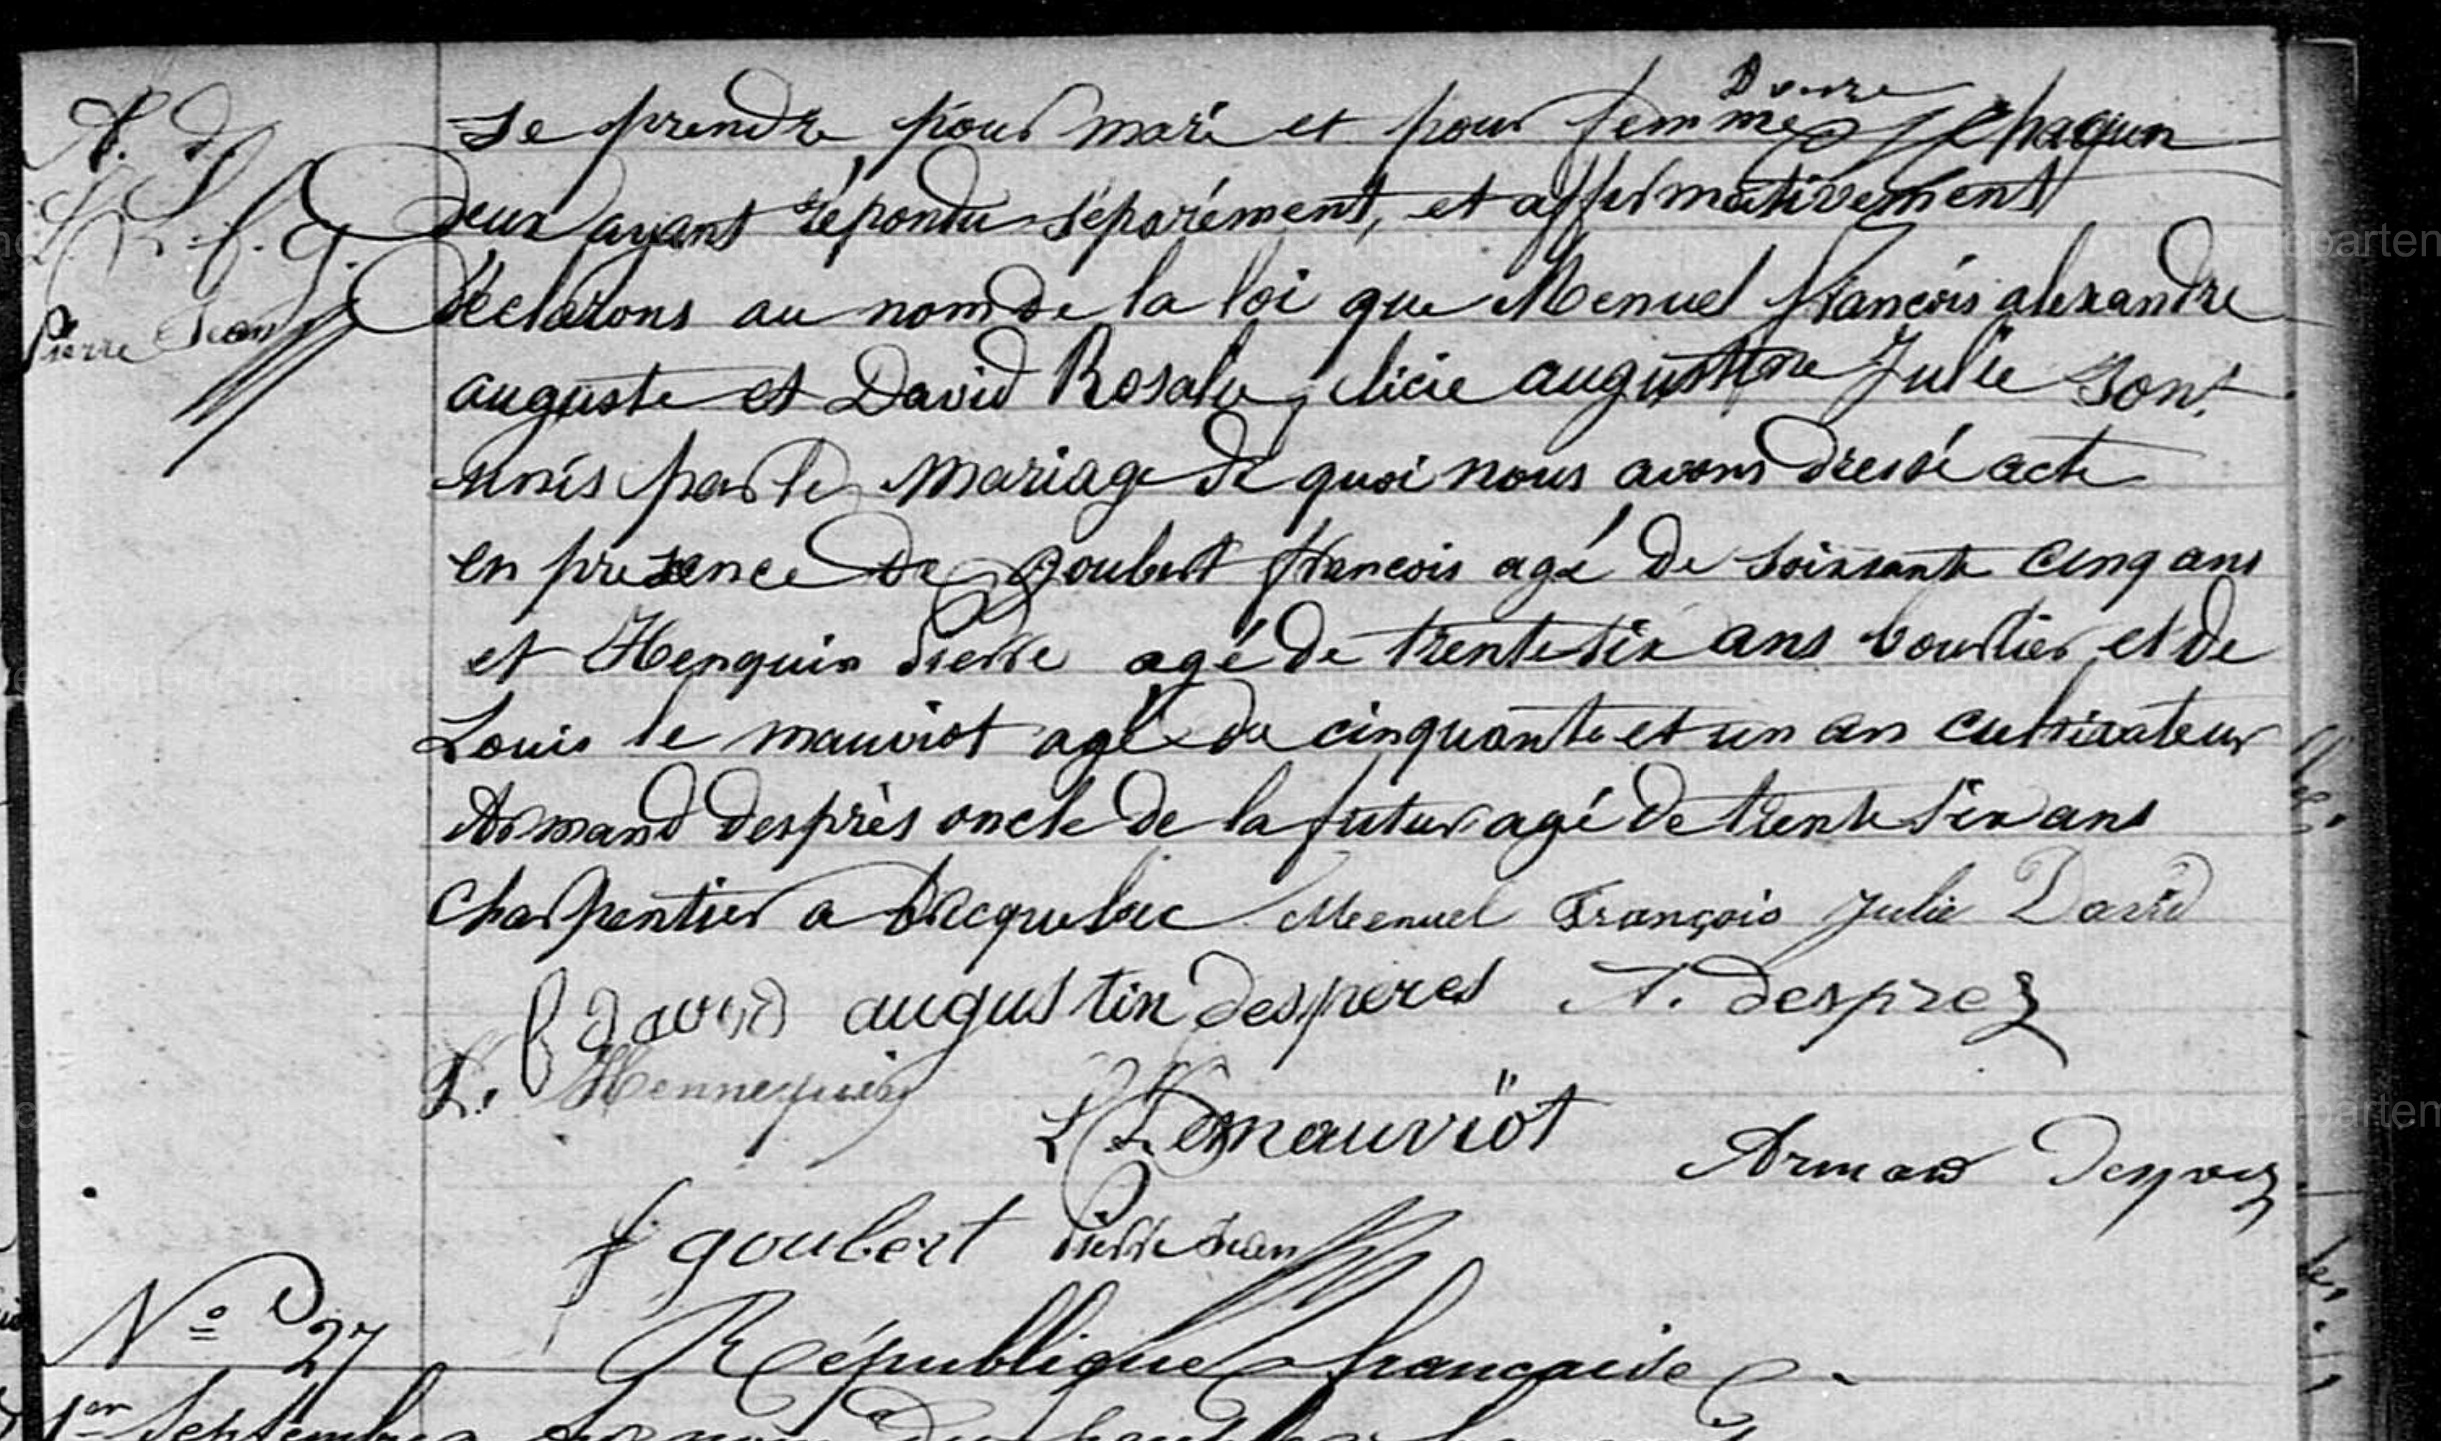 A. d.
L. L. f. G.
Pierre Jean
se prendre pour mari et pour femme chaqun
deux ayant répondu séparément, et affirmativement
déclarons au nom de la loi que Menuel François alexandre
auguste et David Rosalie licie augustine Julie sont
unis par le mariage de quoi nous avons dressé acte
en presence de goubert francois agé de soissante cinq ans
et Henquin Pierre agé de trente six ans bourlier et de
Louis le mauviot agé de cinquante et un an cultivateur
Armand desprès oncle de la futur agé de trente six ans
charpentier a bricquebec Menuel François Julie David
David augustin desperes A. desprez
P. Hennequin
L Lemauviöt
Armand Desprez
f goubert Pierre Jean
N° 27
République francaise
1er Septembre